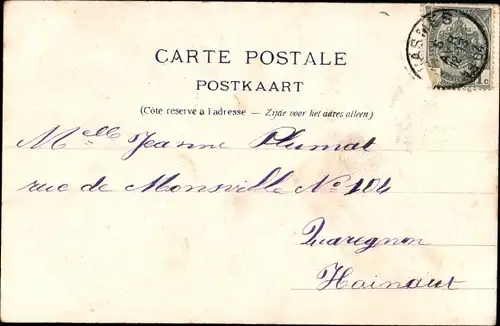 WASMES
CARTE POSTALE
POSTKAART
(Côté réservé à l'adresse — Zijde voor het adres alleen)
Melle Jeanne Plumat
rue de Monsville No 104
Quaregnon
Hainaut